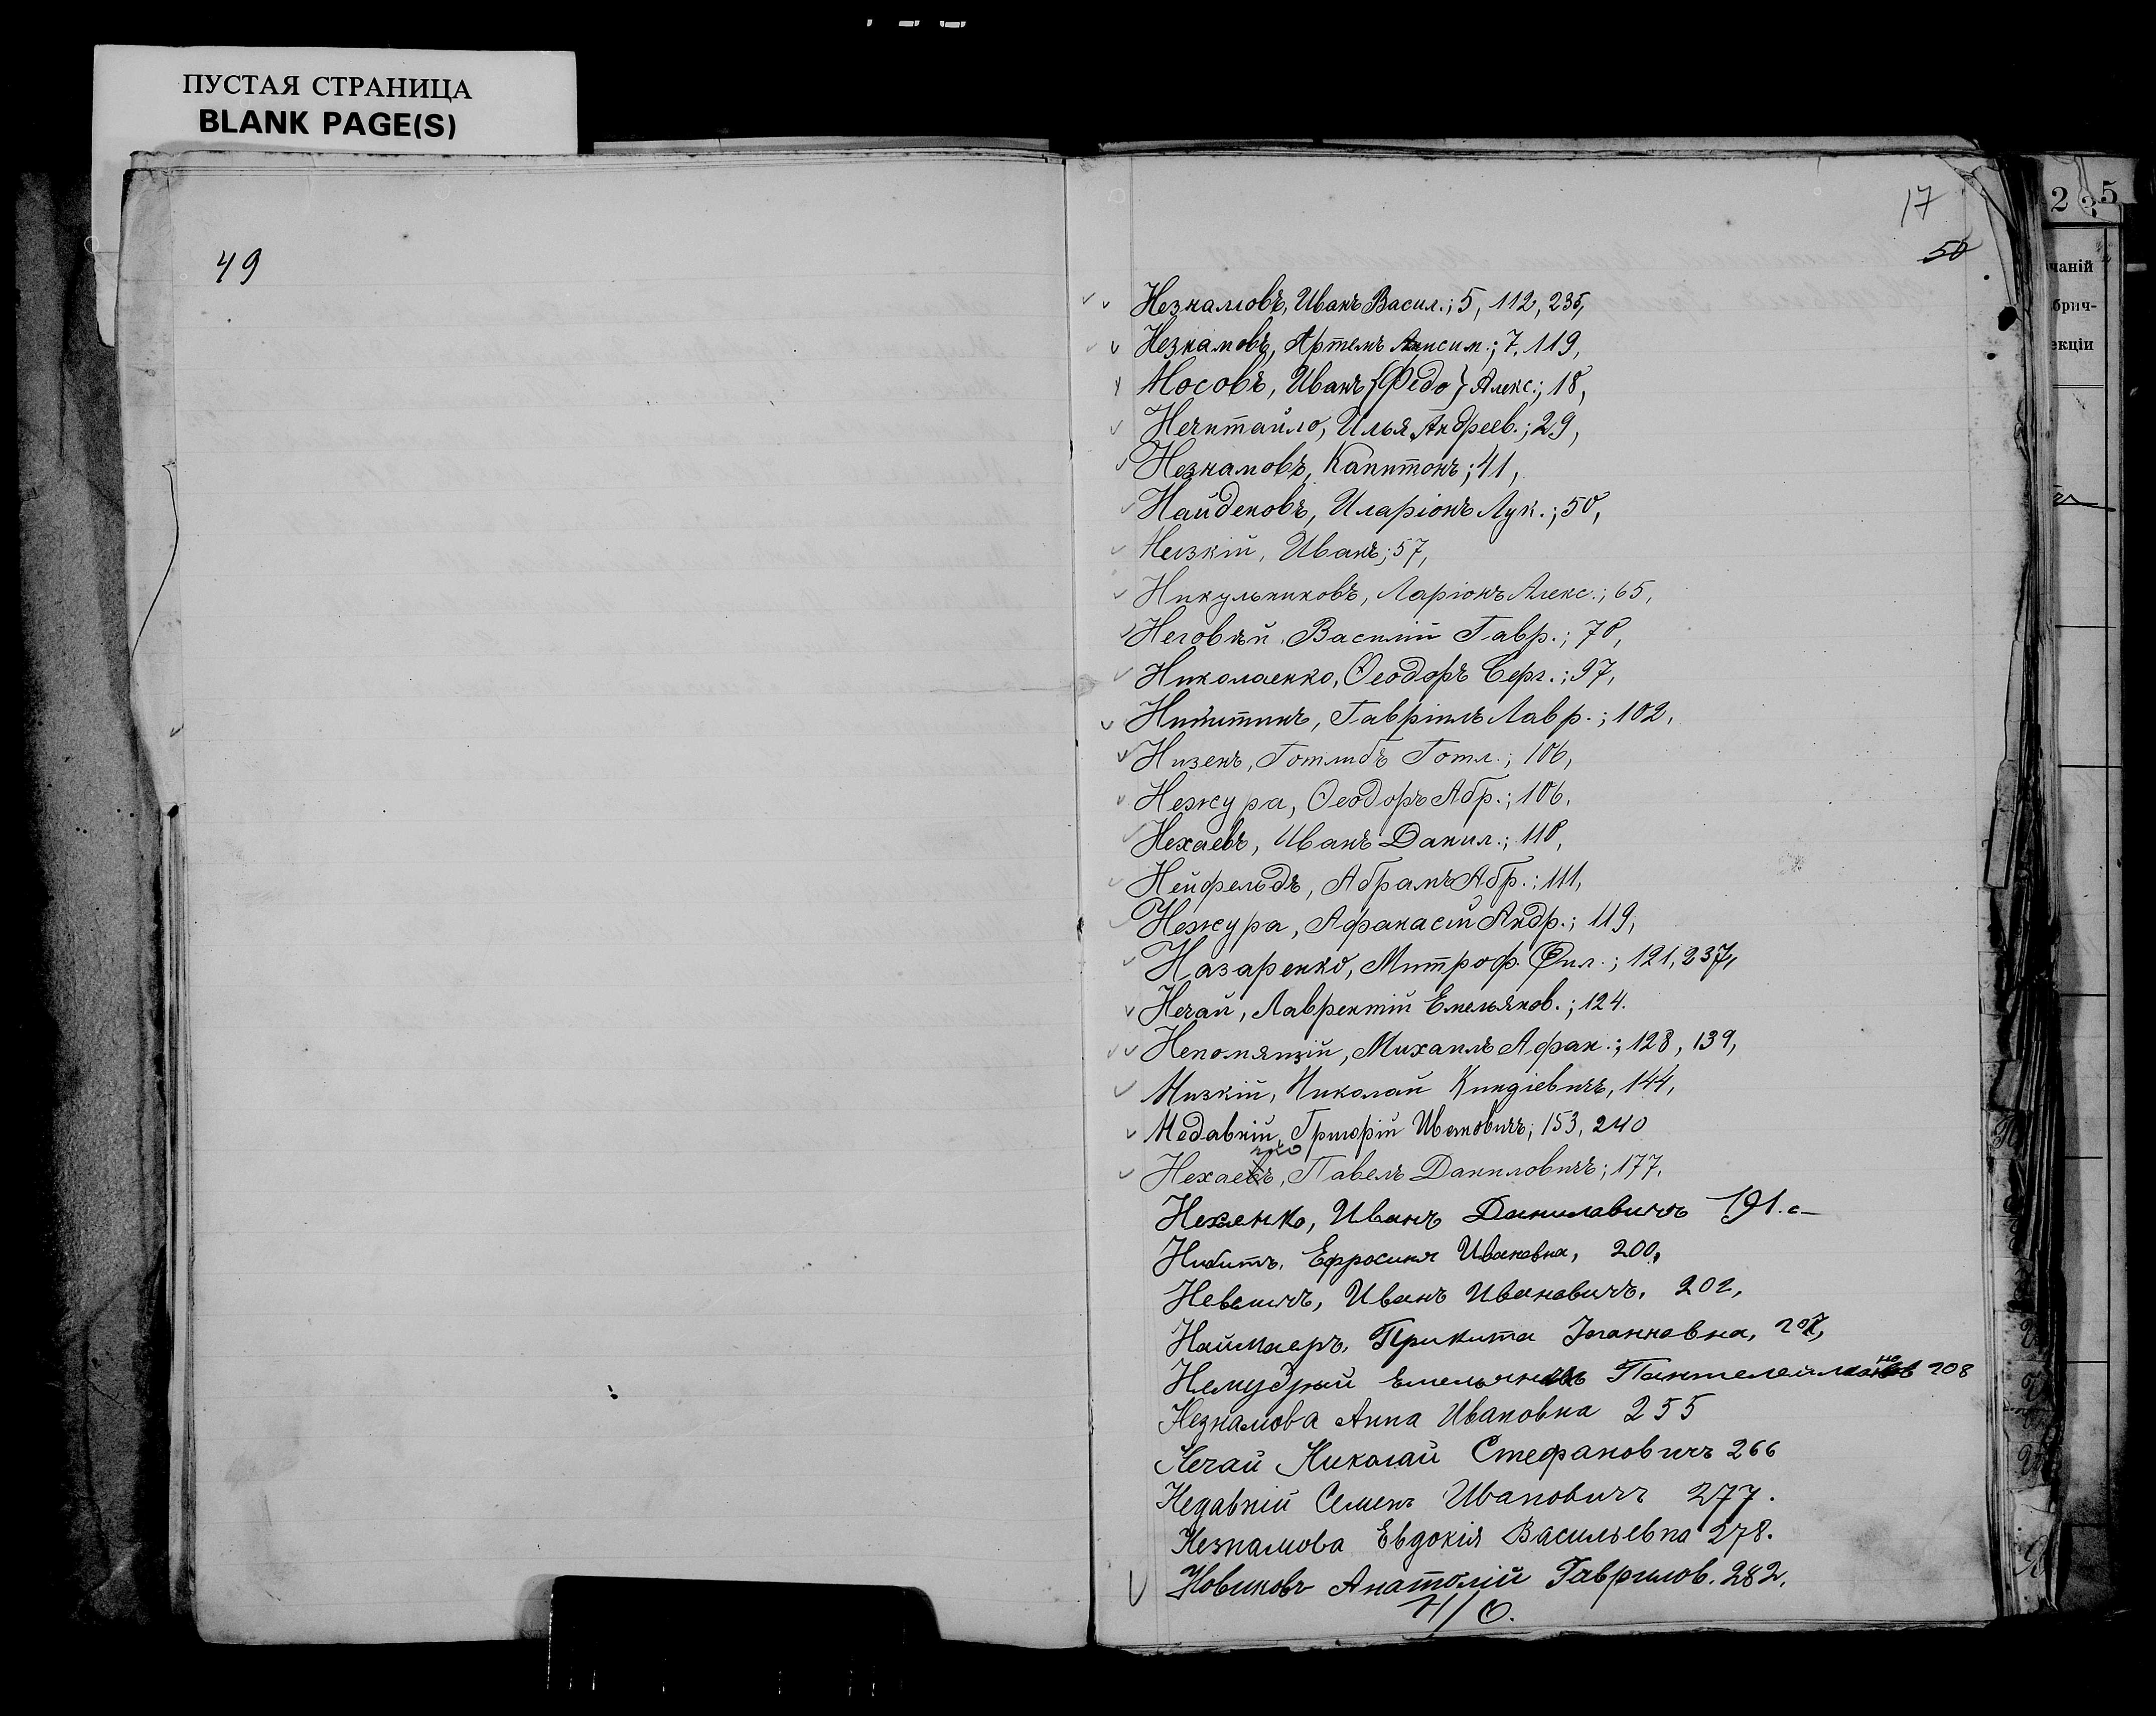 ПУСТАЯ СТРАНИЦА
BLANK PAGE(S)
49
17
50
Незнамовъ, Иванъ Васил.; 5, 112, 235,
Незнамовъ, Артемъ Анисим.; 7, 119,
Носовъ, Иванъ {Федо} Алекс.; 18,
Нечитайло, Илья Андреев.; 29,
Незнамовъ, Капитонъ; 41,
Найденовъ, Иларіонъ Лук.; 50,
Низкій, Иванъ; 57,
Никульниковъ, Ларіонъ Алекс.; 65,
Василій Гавр.; 70,
Николаенко, Ѳеодоръ Серг.; 97,
Никитинъ, Гавріилъ Лавр.; 102,
Низенъ, Готлибъ Готл.; 106,
Нежура, Ѳеодоръ Абр.; 106,
Нехаевъ, Иванъ Данил.; 110,
Нейфельдъ, Абрамъ Абр.; 111,
Нежура, Афанасій Андр.; 119,
Назаренко, Митроф. Фил.; 121, 237,
Нечай, Лаврентій Емельянов.; 124.
Непомящій, Михаилъ Афан.; 128, 139,
Низкій, Николай Киндіевичъ, 144,
Недавній, Григорій Ивановичъ; 153, 240
нко
Нехаевъ, Павелъ Даниловичъ; 177.
Нехаенко, Иванъ Данилавичъ 191.
Ефросинія Ивановна, 200,
Иванъ Ивановичъ, 202,
Наймаеръ, Іоганновна, 207,
Немудрый Емельянъ 208
Незнамова Анна Ивановна 255
Нечай Николай Стефановичъ 266
Недавній Семенъ Ивановичъ 277.
Незнамова Евдокія Васильевна 278.
Новиковъ Анатолій Гаврилов. 282.
Н/О.
2 5
чаній
брич-
екціи